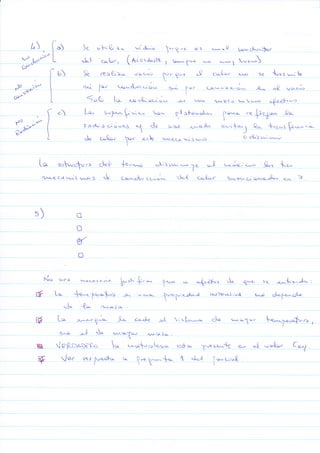 4) a) Se utiliza vidrio porque es mal conductor
No Conducción
del calor, (Aislante, aunque no muy bueno)
b) Se realiza vacío porque el calor no se transmite
No Convección
ni por conducción ni por convección en el vacío
Solo la radiación es un mecanismo efectivo
c) Las superficies son plateadas para reflejar la
No Radiación
radiaciones y de ese modo evitar la transferencia
de calor por este mecanismo
o disminuir
La estructura del termo disminuye al máximo los tres
mecanismos de conducción del calor mencionados en 3
5)
No era necesario justificar pero a efectos de que se entienda:
La temperatura es una propiedad intensiva no depende
de la masa
La energía la cede el sistema de mayor temperatura,
no el de mayor masa.
VERDADERO la naturaleza está presente en el valor Cesp
Ver respuesta a pregunta 1 del parcial.